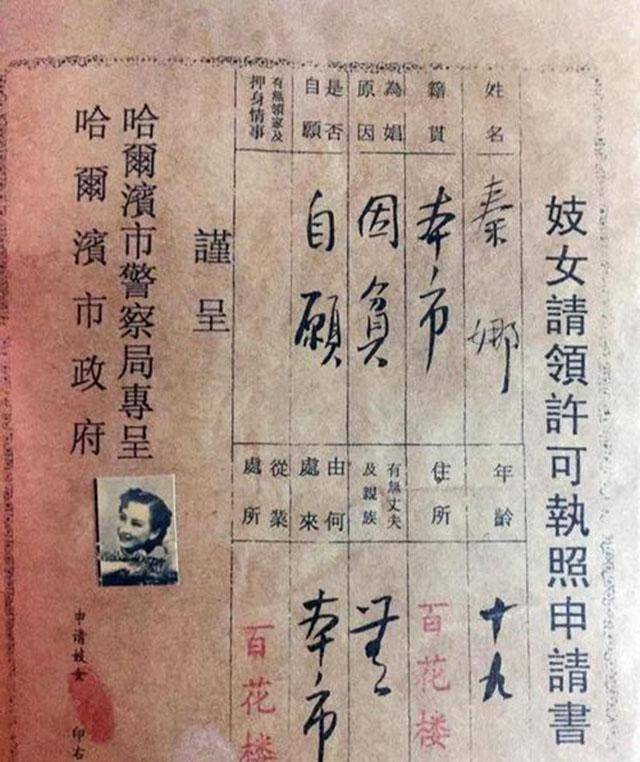 妓女請領許可執照申請書
姓名
秦娜
年齡
十九
籍貫
本市
住所
百花楼
為娼
原因
因貧
有無丈夫
及親族
無
是否
自願
自願
由何
處來
本市
有無領家及
押身情事
從業
處所
百花楼
謹呈
哈爾濱市警察局專呈
哈爾濱市政府
申请妓女 印右